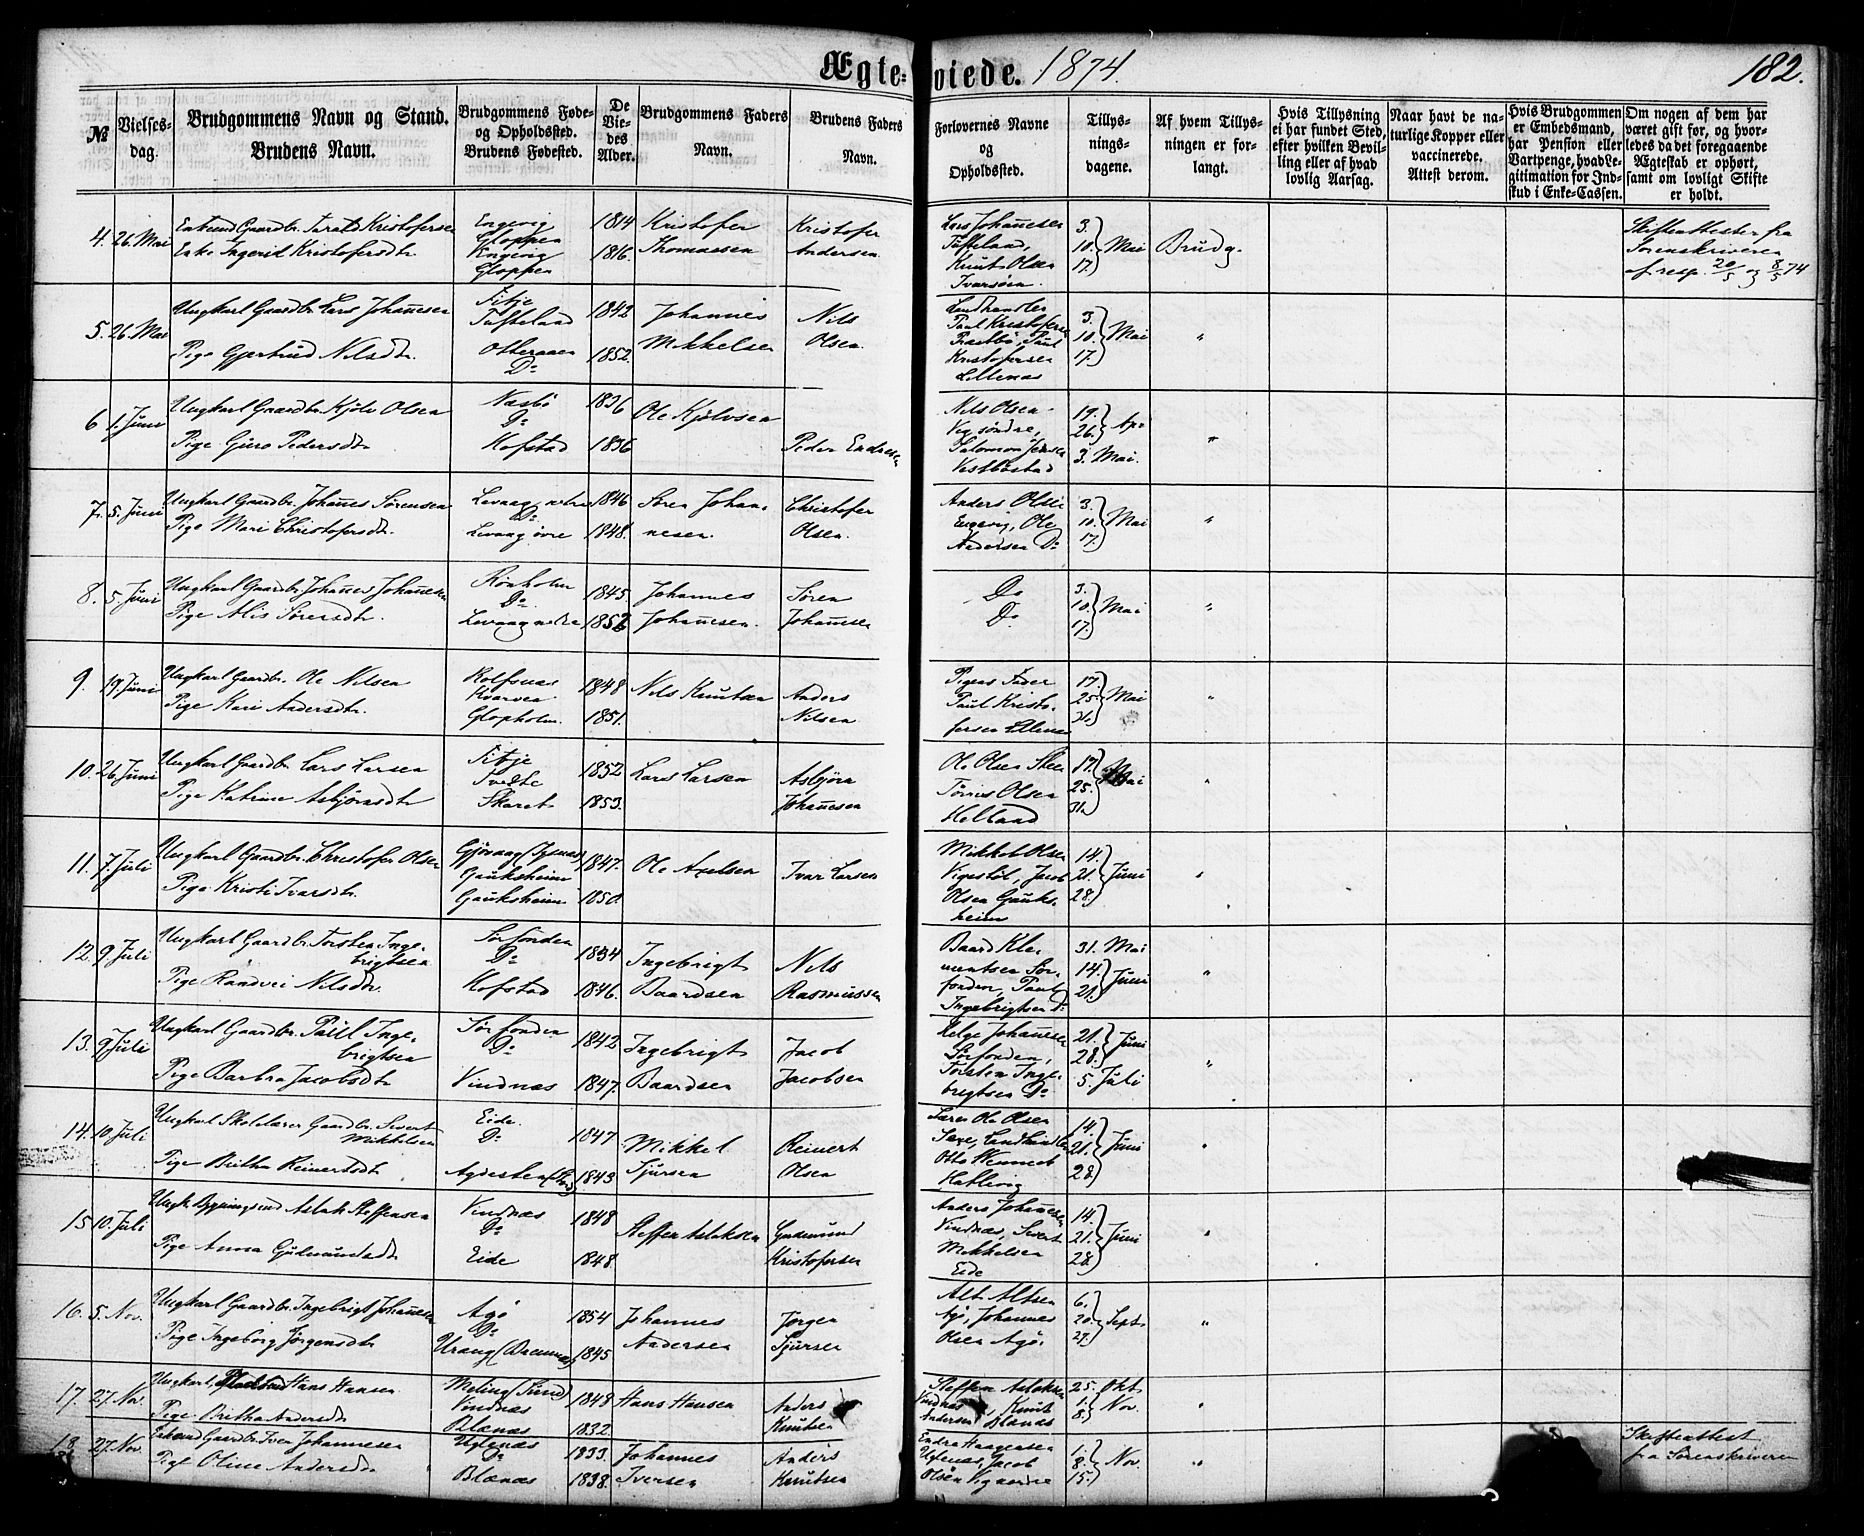 Ægteviede. 1874. 182.
№
Vielses-
dag.
Brudgommens Navn og Stand.
Brudens Navn.
Brudgommens Føde-
og Opholdssted.
Brudens Fødested.
De
Vie-
des
Alder.
Brudgommens Faders
Navn.
Brudens Faders
Navn.
Forlovernes Navne
og
Opholdssted.
Tillys-
nings-
dagene.
Af hvem Tillys-
ningen er for-
langt.
Hvis Tillysning
ei har fundet Sted,
efter hvilken Bevil-
ling eller af hvad
lovlig Aarsag.
Naar havt de na-
turlige Kopper eller
vaccinerede.
Attest derom.
Hvis Brudgommen
er Embedsmand,
har Pension eller
Vartpenge, hvad Le-
gitimation for Ind-
skud i Enke-Cassen.
Om nogen af dem har
været gift før, og hvor-
ledes da det foregaaende
Ægteskab er ophørt,
samt om lovligt Skifte
er holdt.
4. 26. Mai Enkemd Gaardbr. Kristofersen
Enke Ingerid Kristofersdtr
Engevig
Gloppen
Engevig
Gloppen
1814
1816.
Kristofer
Thomassen
Kristofer
Andersen
Lars Johannesen
Tuftelaad,
Knut Olsen
Ivarsøen
3.
10. Mai
17.
Brudg.
Skifteattester fra
Sorenskriveren
af resp. 20/5 og 8/5 74
5. 26. Mai Ungkarl Gaardbr. Lars Johannesen
Pige Gjertrud Nilsdtr.
Fitje
Tuftelaad
Otteraaen
Do
1842
1852.
Johannes
Mikkelsen
Nils
Olsen
Landhandler
Paul Kristofersen
Paul
Kristofersen
Lillenæs
3.
10. Mai
17.
"
6 1. Juni Ungkarl Gaardbr. Kjølv Olsen
Pige Guro Pedersdtr
Næsbø
Do
Kofstad
1836
1836
Ole Kjølvsen
Peder Endresen
Nils Olsen
Vig søndre,
Salomon Jensen
Vestbøstad
19.
26. Apr
3. Mai.
"
7. 5. Juni Ungkarl Gaardbr. Johannes Sørensen
Pige Mari Christofersdtr.
Levaag nedre
Do
Levaag øvre
1846
1848.
Søren Johan-
nesen.
Christofer
Olsen.
Anders Olsen
Engevig, Ole
Andersen Do
3.
10. Mai
17.
"
8. 5. Juni Ungkarl Gaardbr. Johannes Johannesen
Pige Alis Sørensdtr.
Rønholm
Do
Levaag nedre
1845.
1852
Johannes
Johannesen.
Søren
Johannesen
Do
Do
3.
10. Mai
17.
"
9. 19. Juni Ungkarl Gaardbr. Ole Nilsen
Pige Kari Andersdtr.
Rolfsnæs
Kvarven
Glopholm.
1848
1851.
Nils Knutsen
Anders
Nilsen
Pigens Fader
Paul Kristo-
fersen Lillenæs
17.
25. Mai
31.
"
10. 26. Juni Ungkarl Gaardbr. Lars Larsen
Pige Katrine Asbjørnsdtr
Fitje
Tvedte
Skaret
1852
1853.
Lars Larsen
Asbjørn
Johannesen
Ole Olsen Steen
Tørris Olsen
Helland
17.
25. Mai
31.
"
11. 7. Juli Ungkarl Gaardbr. Christofer Olsen
Pige Kristi Ivarsdtr.
Gjøvaag
Gauksheim
Gauksheim
1847.
1850.
Ole Axelsen
Ivar Larsen
Mikkel Olsen
Vigestøl, Jacob
Olsen Gauks-
heim
14.
21. Juni
28.
"
12. 9. Juli Ungkarl Gaardbr. Torsten Inge-
brigtsen
Pige Randvei Nilsdtr.
Sørfonden
Do
Kofstad
1834
1846.
Ingebrigt
Baardsen
Nils
Rasmussen
Baard Kle-
mentsen Sør-
fonden, Paul
Ingebrigtsen Do
31. Mai
14. Juni
21.
"
13. 9. Juli Ungkarl Gaardbr. Paul Inge-
brigtsen
Pige Barbra Jacobsdtr
Sørfonden
Do
Vindnæs
1842
1847.
Ingebrigt
Baardsen
Jacob
Jacobsen
Helge Johannesen
Sørfonden,
Torsten Inge-
brigtsen Do
21. Juni
28.
5. Juli
"
14. 10. Juli Ungkarl Skolelærer Gaardbr. Sivert
Mikkelsen
Pige Britha Reinertsdtr
Eide.
Do
1847
1843
Mikkel
Sjursen
Reinert
Olsen
Lærer Ole Olsen
Saxe, Landhandler
Otto
Hatlevig
14.
21. Juni
28.
"
15 10. Juli Ungk. Aslak Steffensen
Pige Anna Gudmundsdtr
Vindnæs
Do
Eide
1848
1848
Steffen Aslaksen
Gudmund
Kristofersen
Anders Johannesen
Vindnæs, Sivert
Mikkelsen
Eide
14.
21. Juni
28.
"
16. 5. Nov. Ungkarl Gaardbr. Ingebrigt Johannesen
Pige Ingeborg Jørgensdtr
Agø
Do
Urang (Bremnæs)
1854
1845
Johannes
Andersen
Jørgen
Sjursen
Alt Altsen
Agø, Johannes
Olsen Agø.
6.
20. Sept.
27.
"
17. 27. Nov. Ungkarl Hans Hansen
Pige Britha Andersdtr
Meling (Sund)
Vindnæs
Blænæs
1843
1832.
Hans Hansen
Anders
Knutsen
Steffen Aslaksen
Vindnæs, Knut
Andersen Blænæs
25. Okt.
1. Nov.
8.
"
18. 27. Nov. Enkemd Gaardbr. Iver Johannesen
Pige Oline Andersdtr
Uglenæs
Do
Blænæs
1833.
1838.
Johannes
Iversen
Anders
Knutsen
Endre Haagensen
Uglenæs, Jacob
Olsen Vig nordre
1.
8. Nov.
15.
"
Skifteattest
fra Sorenskriveren